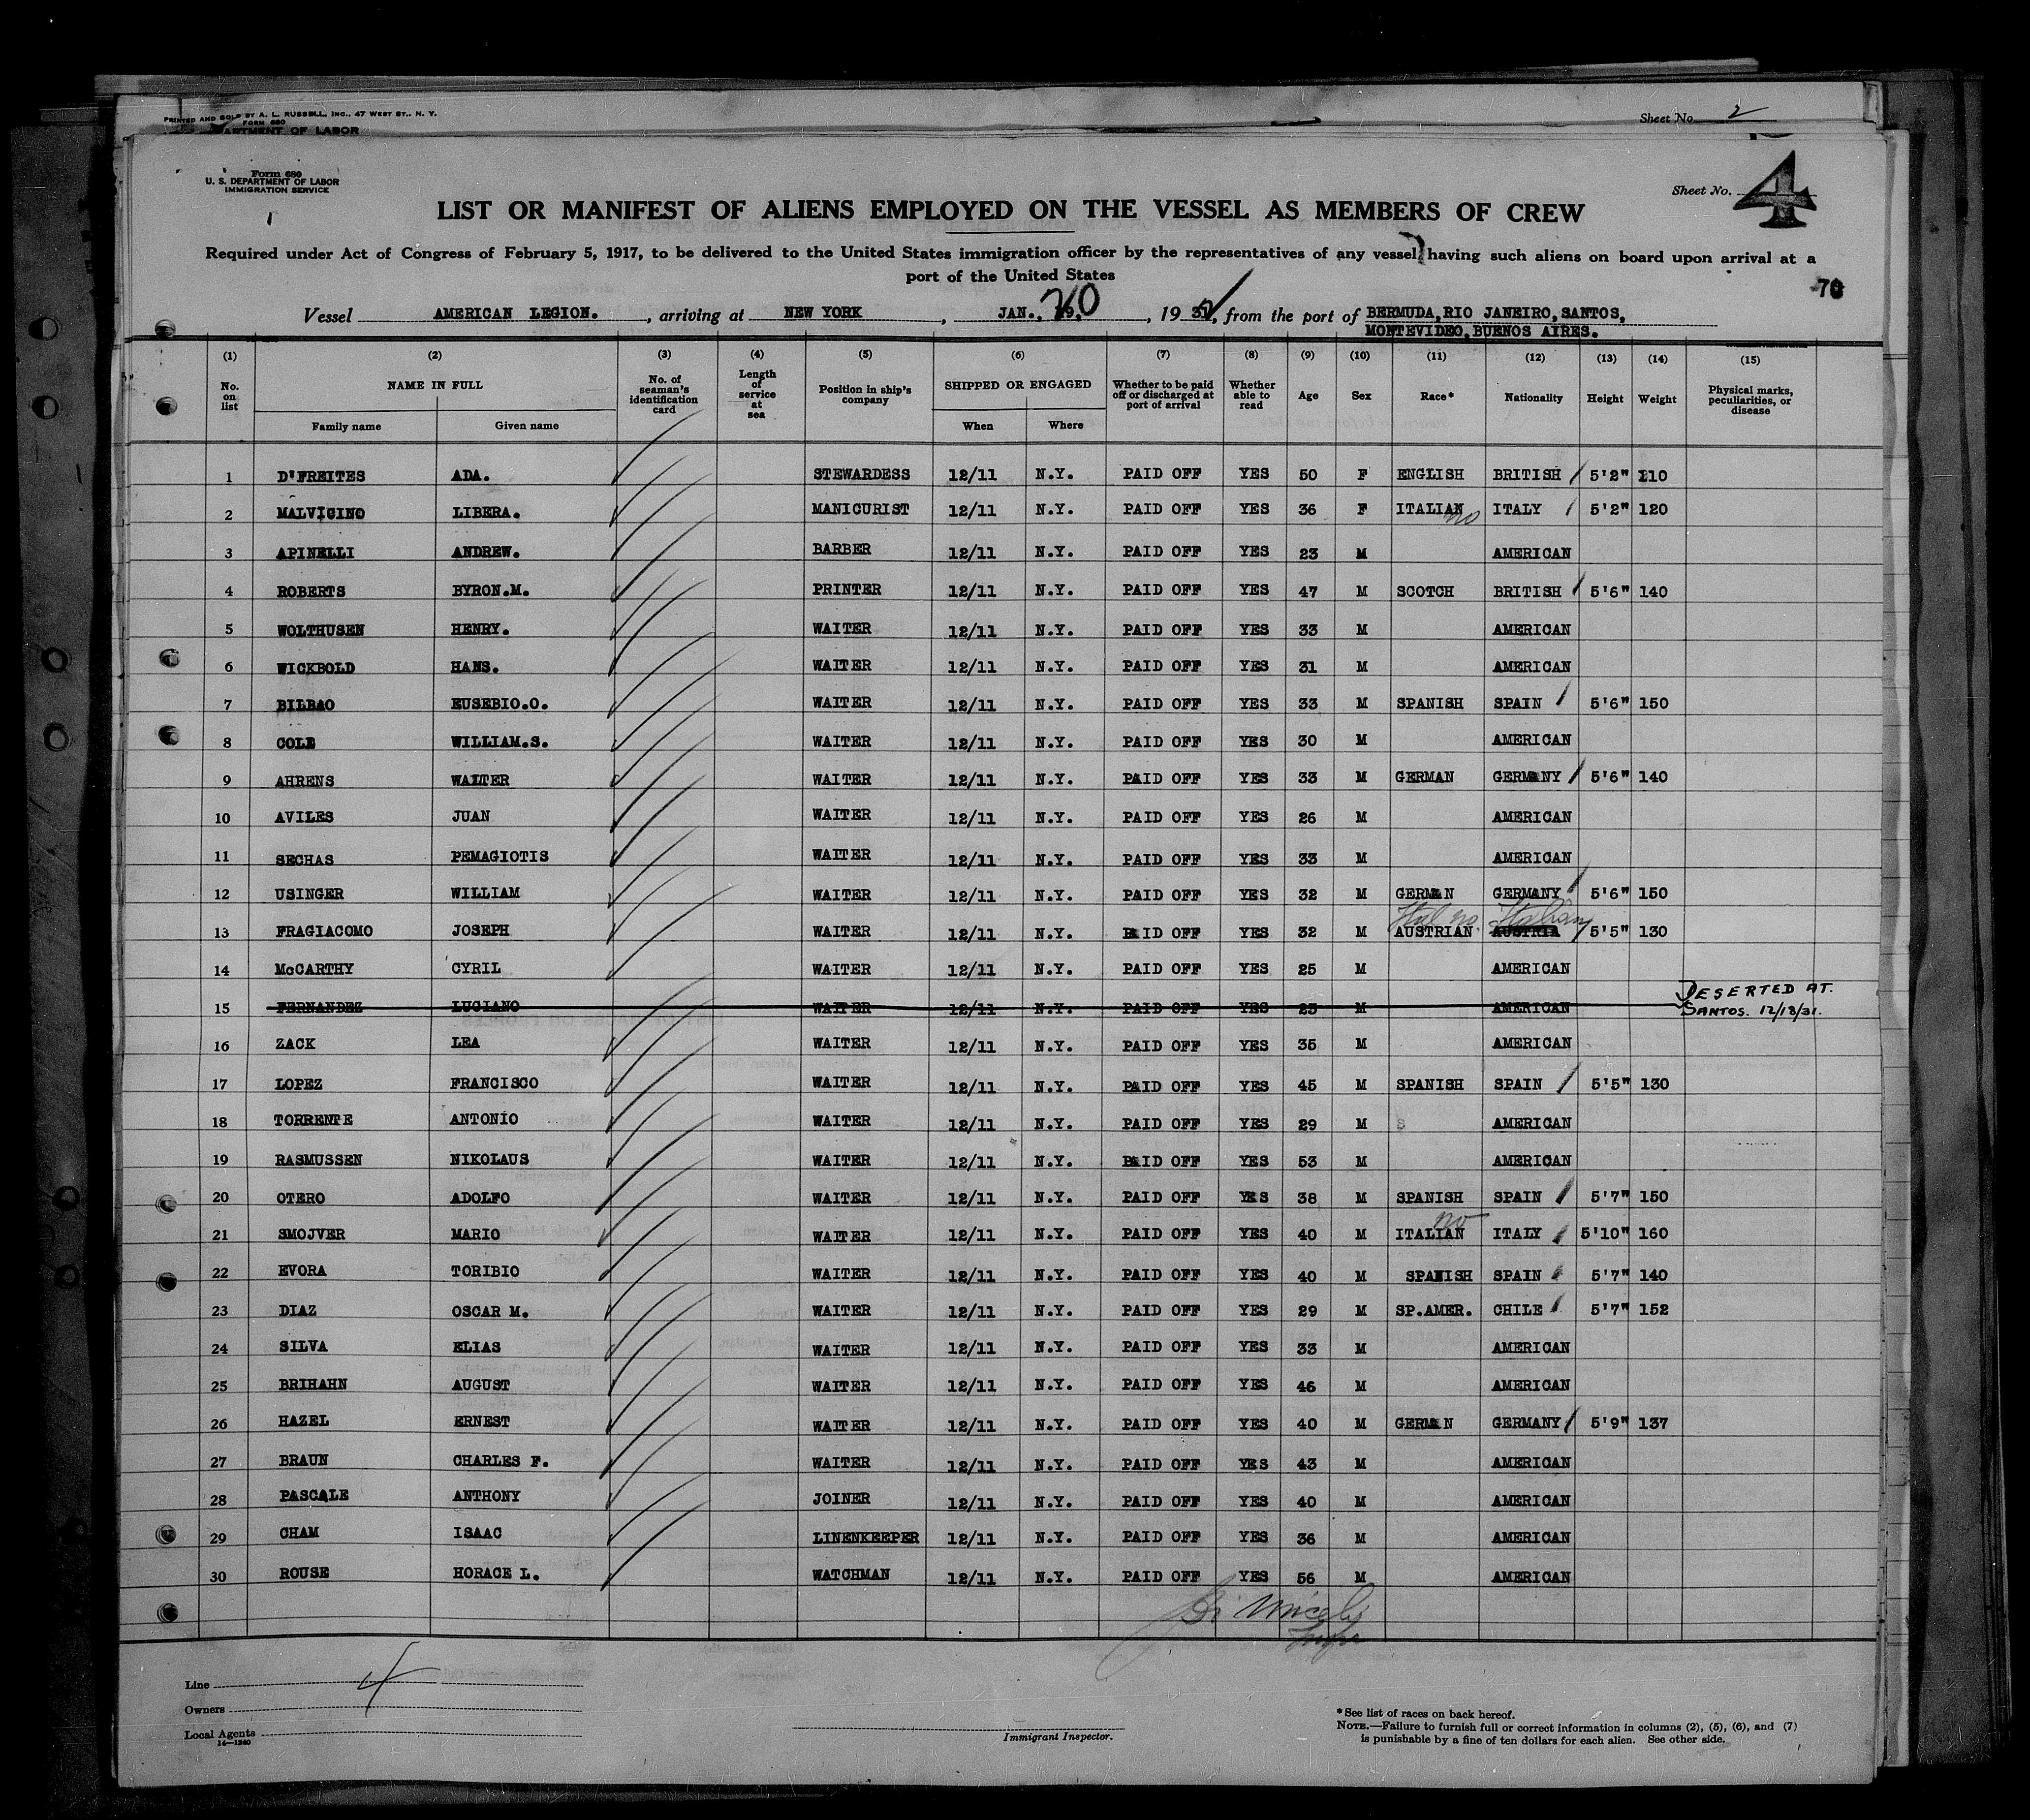 PRINTED AND SOLD BY A. L. RUSSELL, INC., 47 WEST ST., N. Y.
FORM 680
ARTMENT OF LABOR
Sheet No. 2
Form 680
U. S. DEPARTMENT OF LABOR
IMMIGRATION SERVICE
Sheet No. 4
LIST OR MANIFEST OF ALIENS EMPLOYED ON THE VESSEL AS MEMBERS OF CREW
Required under Act of Congress of February 5, 1917, to be delivered to the United States immigration officer by the representatives of any vessel having such aliens on board upon arrival at a
port of the United States
70
Vessel AMERICAN LEGION. , arriving at NEW YORK , JAN. 20 , 1932, from the port of BERMUDA, RIO JANEIRO, SANTOS,
MONTEVIDEO, BUENOS AIRES.
(1) (2) (3) (4) (5) (6) (7) (8) (9) (10) (11) (12) (13) (14) (15)
No. on list NAME IN FULL No. of seaman's identification card Length of service at sea Position in ship's company SHIPPED OR ENGAGED Whether to be paid off or discharged at port of arrival Whether able to read Age Sex Race* Nationality Height Weight Physical marks, peculiarities, or disease
Family name Given name When Where
1 D'FREITES ADA. STEWARDESS 12/11 N.Y. PAID OFF YES 50 F ENGLISH BRITISH 5'2" 110
2 MALVICINO LIBERA. MANICURIST 12/11 N.Y. PAID OFF YES 36 F ITALIAN no ITALY 5'2" 120
3 APINELLI ANDREW. BARBER 12/11 N.Y. PAID OFF YES 23 M AMERICAN
4 ROBERTS BYRON.M. PRINTER 12/11 N.Y. PAID OFF YES 47 M SCOTCH BRITISH 5'6" 140
5 WOLTHUSEN HENRY. WAITER 12/11 N.Y. PAID OFF YES 33 M AMERICAN
6 WICKBOLD HANS. WAITER 12/11 N.Y. PAID OFF YES 31 M AMERICAN
7 BILBAO EUSEBIO.O. WAITER 12/11 N.Y. PAID OFF YES 33 M SPANISH SPAIN 5'6" 150
8 COLE WILLIAM.S. WAITER 12/11 N.Y. PAID OFF YES 30 M AMERICAN
9 AHRENS WALTER WAITER 12/11 N.Y. PAID OFF YES 33 M GERMAN GERMANY 5'6" 140
10 AVILES JUAN WAITER 12/11 N.Y. PAID OFF YES 26 M AMERICAN
11 SECHAS PEMAGIOTIS WAITER 12/11 N.Y. PAID OFF YES 33 M AMERICAN
12 USINGER WILLIAM WAITER 12/11 N.Y. PAID OFF YES 32 M GERMAN GERMANY 5'6" 150
Ital no. Italian
13 FRAGIACOMO JOSEPH WAITER 12/11 N.Y. PAID OFF YES 32 M AUSTRIAN AUSTRIA 5'5" 130
14 McCARTHY CYRIL WAITER 12/11 N.Y. PAID OFF YES 25 M AMERICAN
15 FERNANDEZ LUCIANO WAITER 12/11 N.Y. PAID OFF YES 23 M AMERICAN DESERTED AT. SANTOS. 12/18/31.
16 ZACK LEA WAITER 12/11 N.Y. PAID OFF YES 35 M AMERICAN
17 LOPEZ FRANCISCO WAITER 12/11 N.Y. PAID OFF YES 45 M SPANISH SPAIN 5'5" 130
18 TORRENTE ANTONIO WAITER 12/11 N.Y. PAID OFF YES 29 M S AMERICAN
19 RASMUSSEN NIKOLAUS WAITER 12/11 N.Y. PAID OFF YES 53 M AMERICAN
20 OTERO ADOLFO WAITER 12/11 N.Y. PAID OFF YES 38 M SPANISH SPAIN 5'7" 150
21 SMOJVER MARIO WAITER 12/11 N.Y. PAID OFF YES 40 M ITALIAN no ITALY 5'10" 160
22 EVORA TORIBIO WAITER 12/11 N.Y. PAID OFF YES 40 M SPANISH SPAIN 5'7" 140
23 DIAZ OSCAR M. WAITER 12/11 N.Y. PAID OFF YES 29 M SP.AMER. CHILE 5'7" 152
24 SILVA ELIAS WAITER 12/11 N.Y. PAID OFF YES 33 M AMERICAN
25 BRIHAHN AUGUST WAITER 12/11 N.Y. PAID OFF YES 46 M AMERICAN
26 HAZEL ERNEST WAITER 12/11 N.Y. PAID OFF YES 40 M GERMAN GERMANY 5'9" 137
27 BRAUN CHARLES F. WAITER 12/11 N.Y. PAID OFF YES 43 M AMERICAN
28 PASCALE ANTHONY JOINER 12/11 N.Y. PAID OFF YES 40 M AMERICAN
29 CHAM ISAAC LINENKEEPER 12/11 N.Y. PAID OFF YES 36 M AMERICAN
30 ROUSE HORACE L. WATCHMAN 12/11 N.Y. PAID OFF YES 56 M AMERICAN
Line 4
Owners
Local Agents
14—1240
Immigrant Inspector.
*See list of races on back hereof.
NOTE.—Failure to furnish full or correct information in columns (2), (5), (6), and (7)
is punishable by a fine of ten dollars for each alien. See other side.